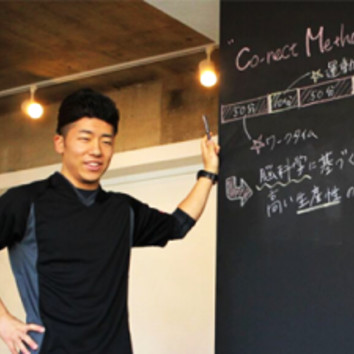 "Co-nect Metho
運動
50分 10分 50分
ワークタイム
脳科学に基づく
高い生産性